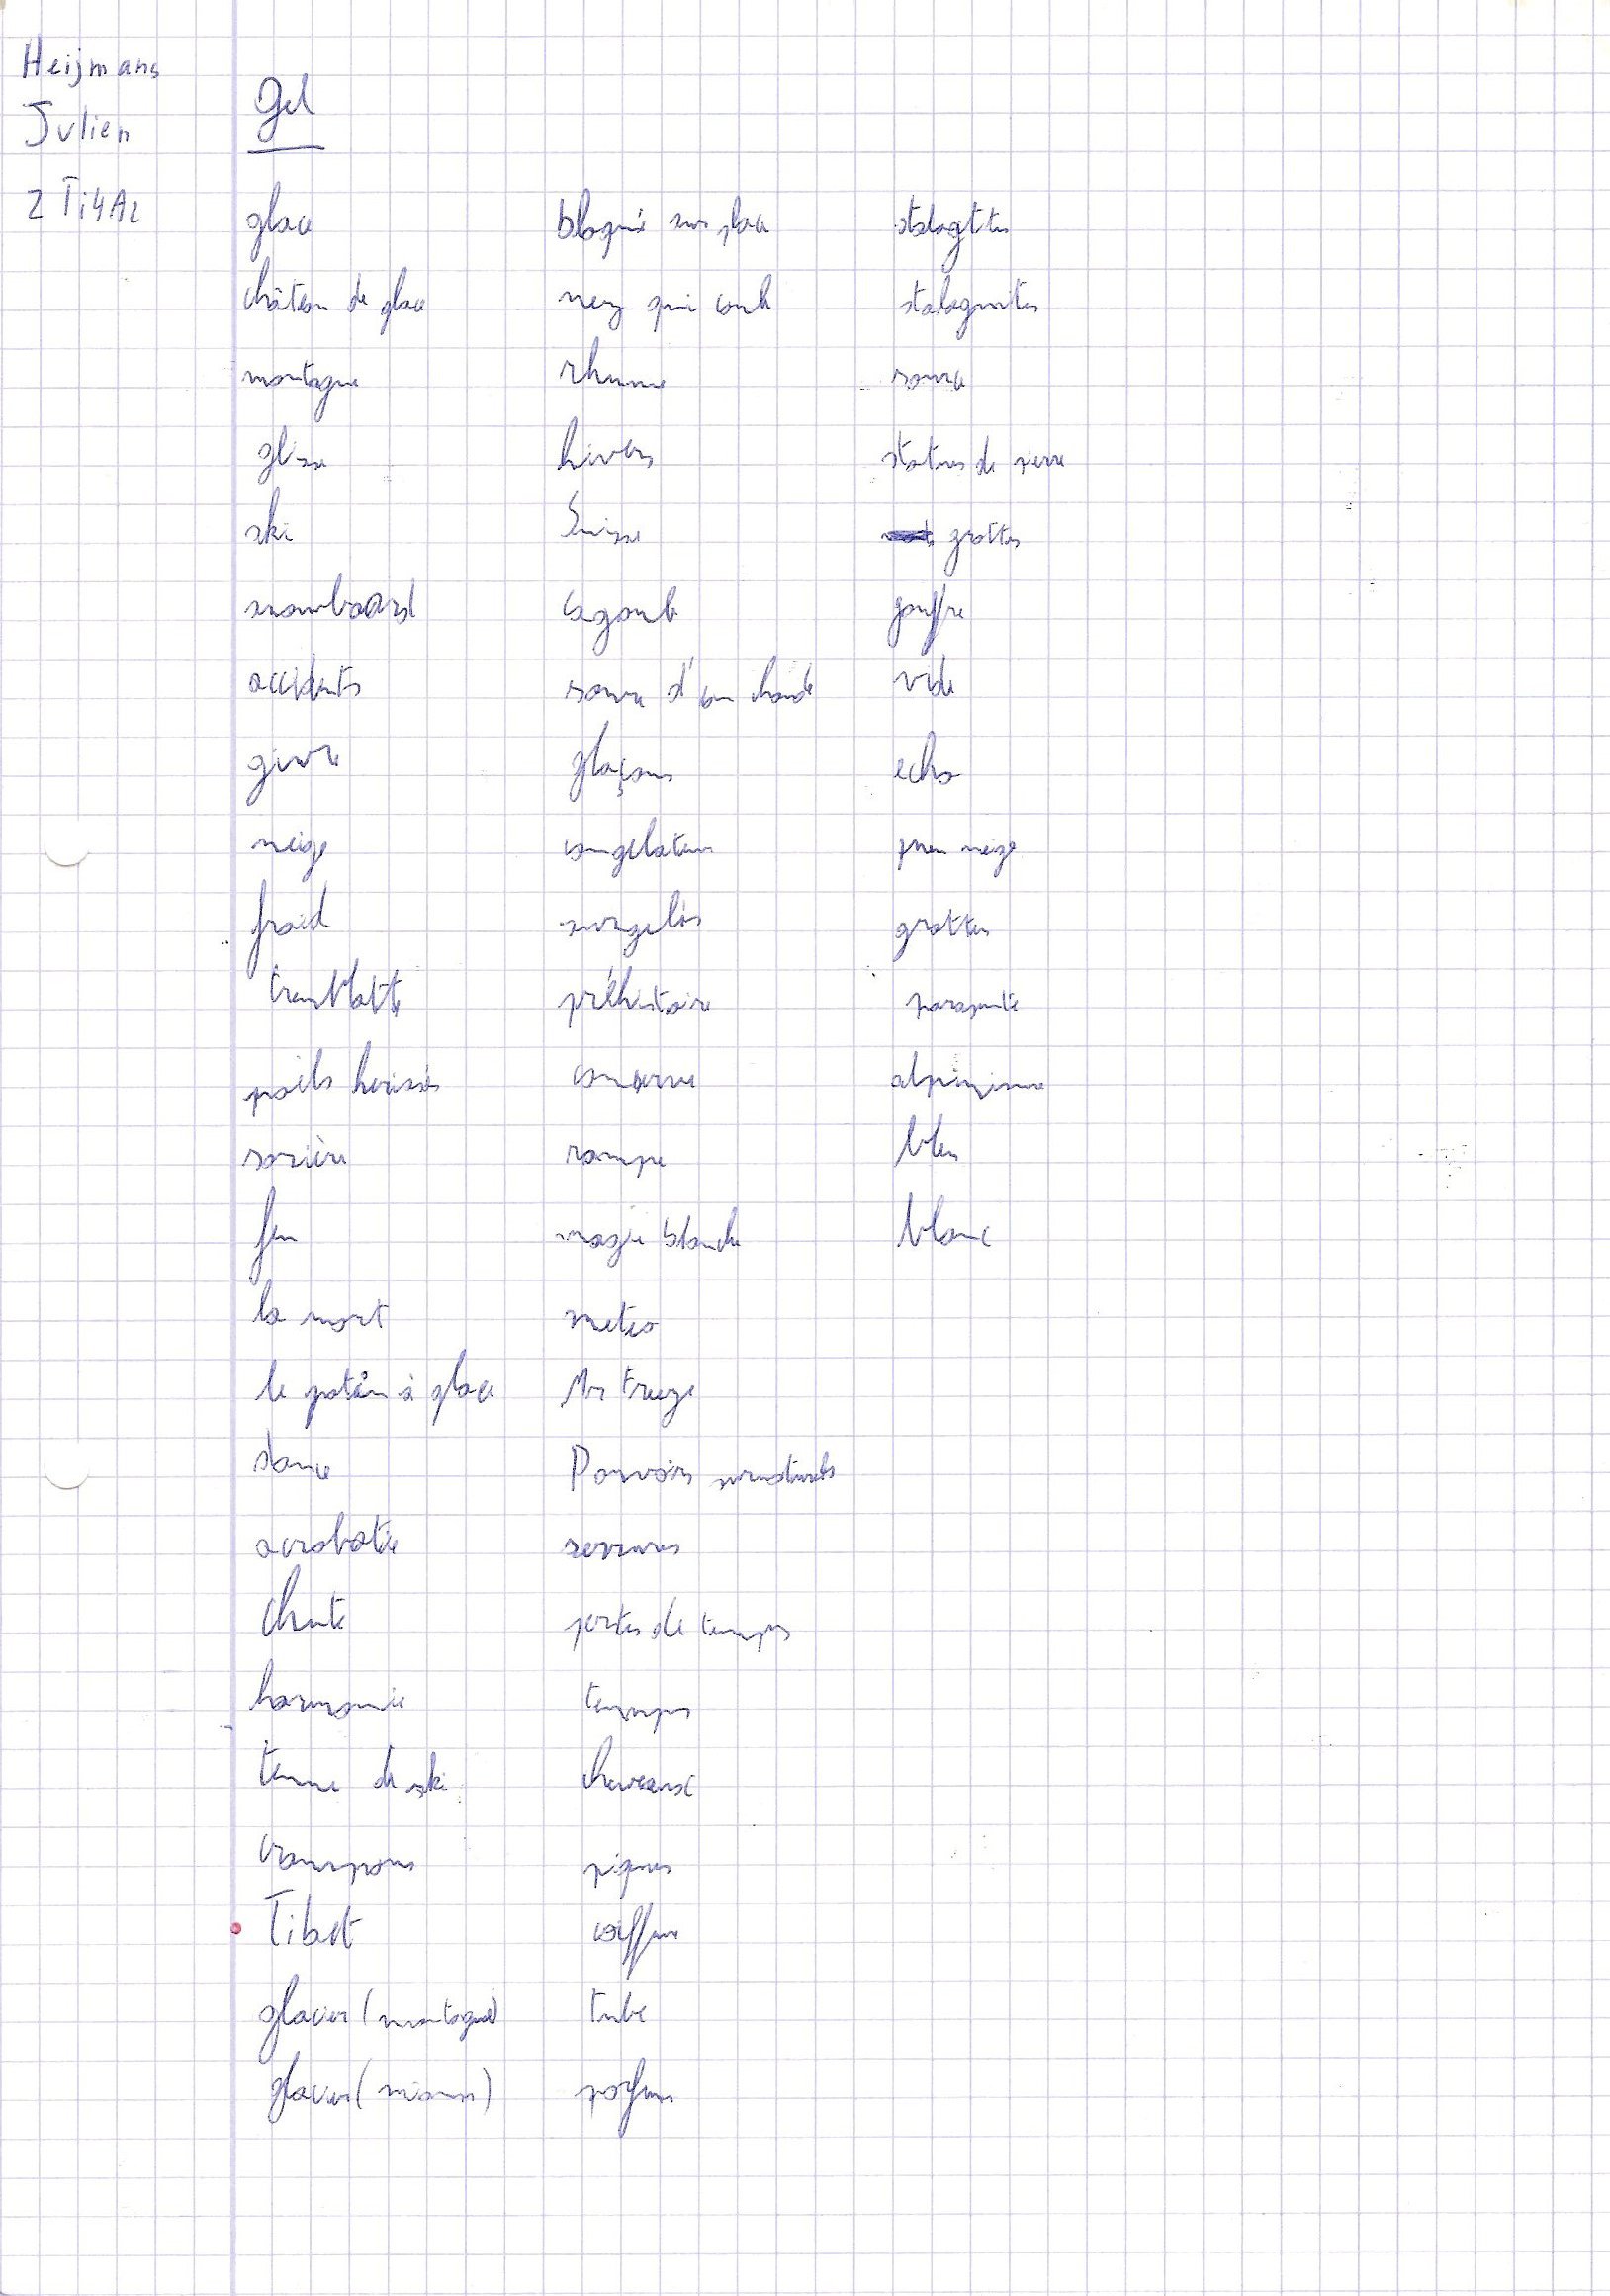 Heijmans
Julien
2 Ti4A2
Gel
glace
château de glace
montagne
glisse
ski
snowboard
accidents
givre
neige
froid
tremblotte
poils herissés
sorcière
feu
la mort
le patin à glace
dance
acrobatie
chute
harmonie
tenue de ski
crampons
Tibet
glacier (montagne)
glacier (
bloqué sur place
nez qui coule
rhume
hivers
Suisse
cagoule
source d'eau chaude
glaçons
congelateur
surgelés
préhistoire
conserve
rampe
magie blanche
meteo
Mr Freeze
Pouvoirs surnaturels
serrures
pertes de temps
temps
cheveaux
piques
coiffure
tube
parfum
stalagtites
stalagmites
source
statues de pierre
grottes
gouffre
vide
echo
pneu neige
grottes
parapente
alpinisme
bleu
blanc